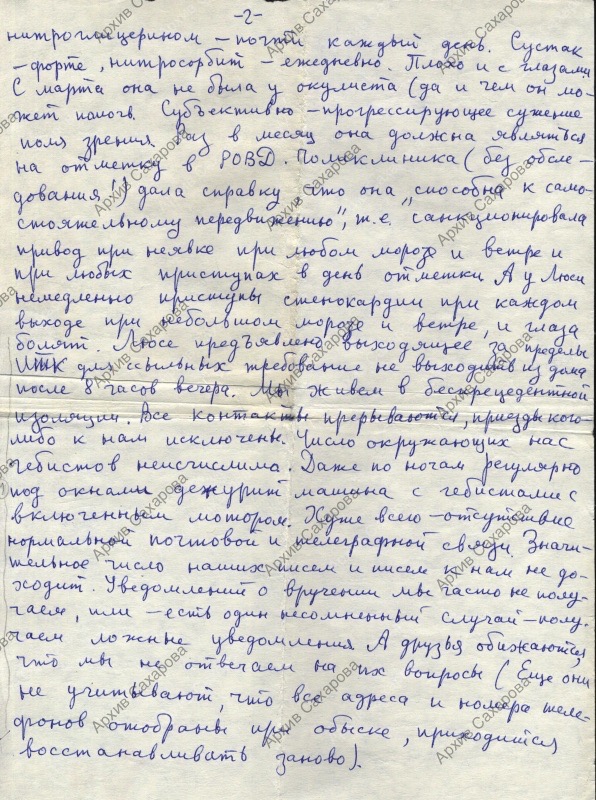 -2-
нитроглицерином – почти каждый день. Сустак
-форте, нитросорбит – ежедневно. Плохо и с глазами
С марта она не была у окулиста (да и чем он мо-
жет помочь. Субъективно – прогрессирующее сужение
поля зрения. Раз в месяц она должна являться
на отметку в РОВД. Поликлиника (без обсле-
дования!) дала справку, что она „способна к само-
стоятельному передвижению", т.е. санкционировала
привод при неявке при любом морозе и ветре и
при любых приступах в день отметки. А у Люси
немедленно приступы стенокардии при каждом
выходе при небольшом морозе и ветре, и глаза
болят. Люсе предъявлено выходящее за пределы
ИТК для ссыльных требование не выходить из дома
после 8 часов вечера. Мы живем в беспрецедентной
изоляции. Все контакты прерываются, приезды кого-
либо к нам исключены. Число окружающих нас
гебистов неисчислимо. Даже по ночам регулярно
под окнами дежурит машина с гебистами с
включенным мотором. Хуже всего – отсутствие
нормальной почтовой и телеграфной связи. Значи-
тельное число наших писем и писем к нам не до-
ходит. Уведомлений о вручении мы часто не полу-
чаем, или – есть один несомненный случай – полу-
чаем ложные уведомления. А друзья обижаются,
что мы не отвечаем на их вопросы (Еще они
не учитывают, что все адреса и номера теле-
фонов отобраны при обыске, приходится
восстанавливать заново).
Архив Сахарова